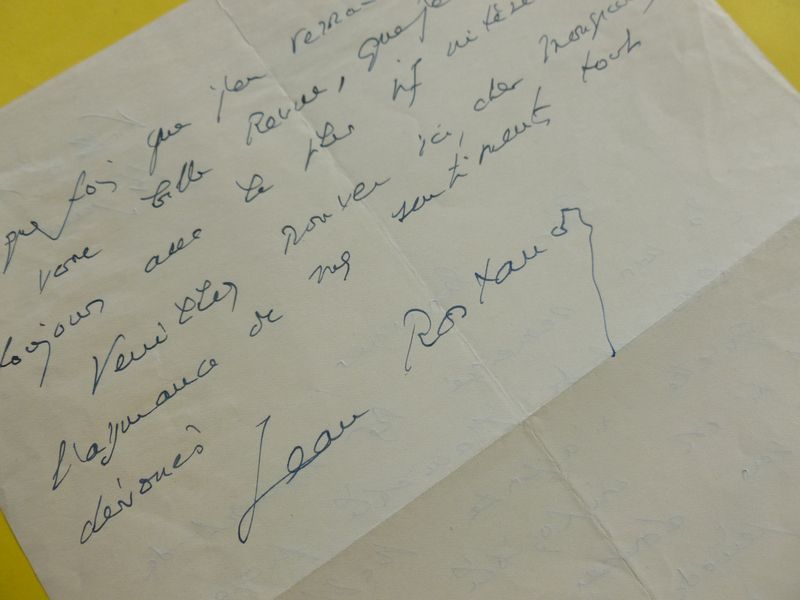 que fois que j'en
votre belle Revue, que je
toujours avec le plus vif intérê
Veuillez trouver ici, cher Monsieur,
l'assurance de mes sentiments tout
dévoués
Jean Rostand